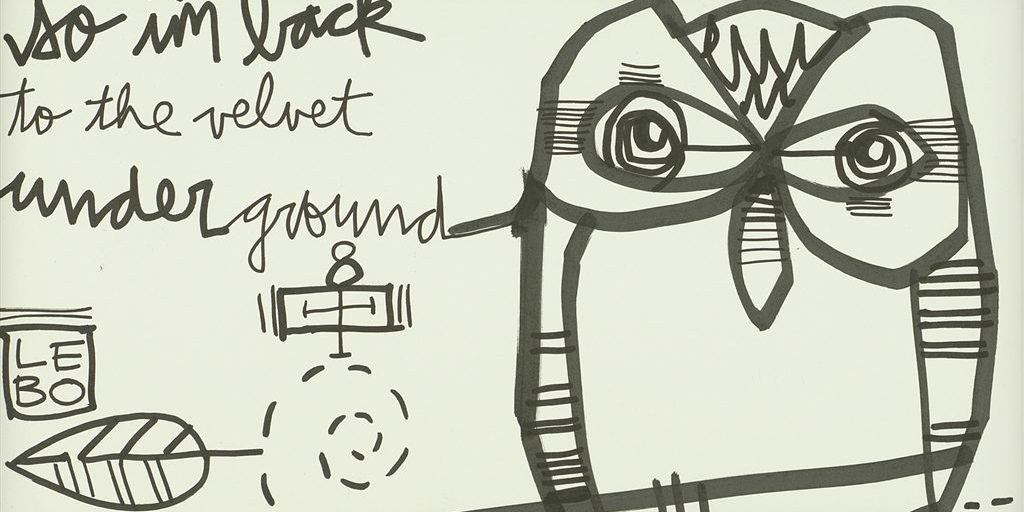 so im back
to the velvet
underground
LE
BO